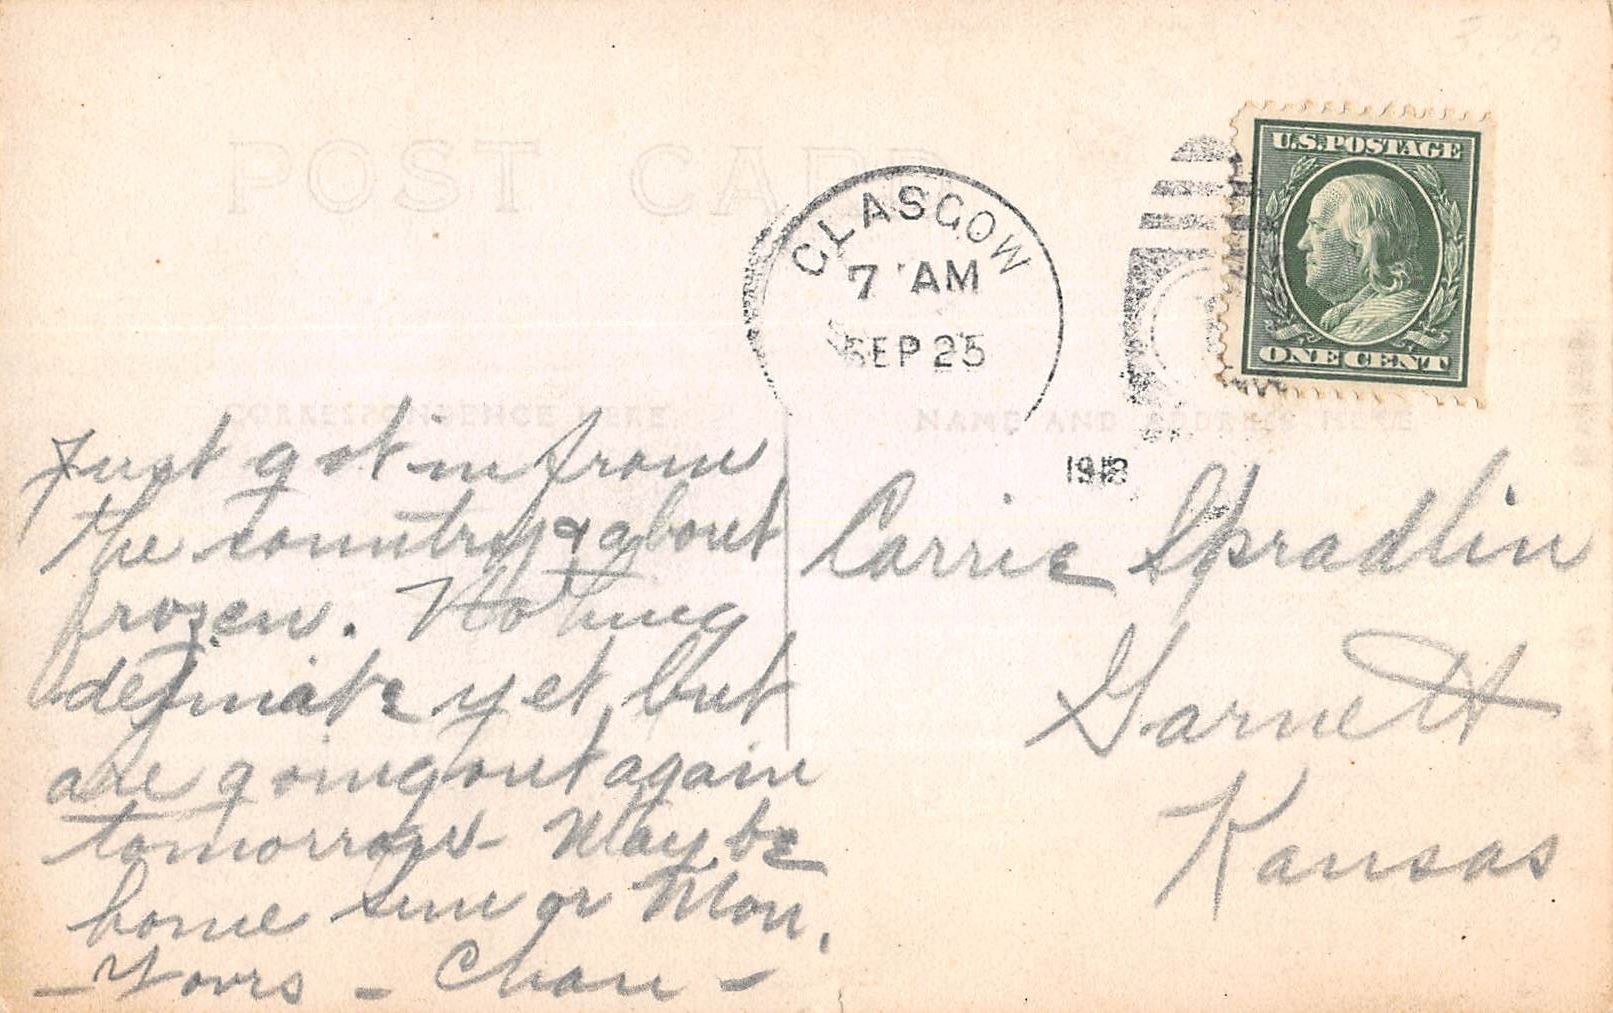 POST CARD
GLASGOW
7 AM
SEP 25
U.S. POSTAGE
ONE CENT
CORRESPONDENCE HERE
NAME AND ADDRESS HERE
Just got in from
the country & about
frozen. Nothing
definate yet, but
are going out again
tomorrow - May be
home Sun or Mon.
- Yours -
Carrie Spradlin
Garnett
Kansas